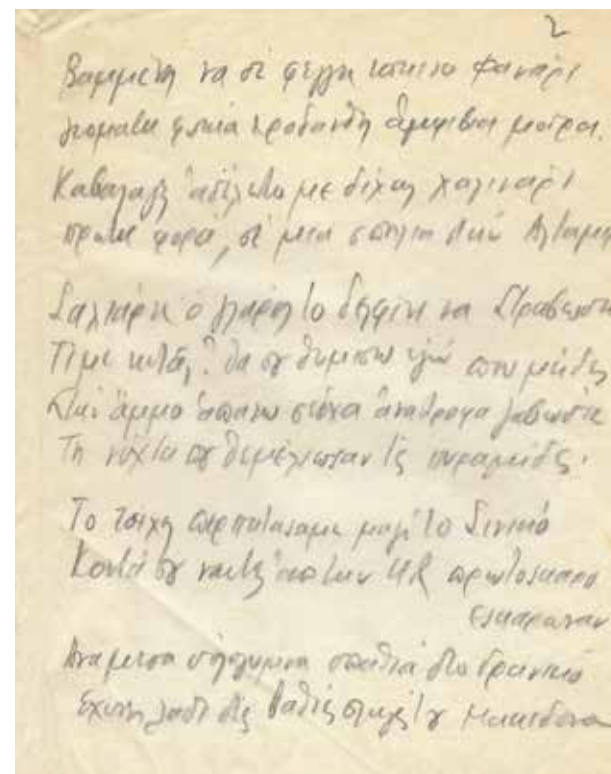 2
Βαμμένη να σε φέγγη κόκκινο φανάρι
γιομάτη φύκια και ροδάνθη αμφίβια μοίρα.
Καβάλαγες ασέλωτο με δίχως χαλινάρι
πρώτη φορά, σε μια σπηλιά στην Αλταμίρα
Σαλτάρει ο γλάρος το δελφίνι να στραβώση
Τι με κοιτάς; θα σου θυμίσω εγώ που με είδες
Στην άμμο απάνω σ' είχα ανάστροφα ζαβώσει
Τη νύχτα που θεμέλιωναν τις πυραμίδες.
Το τείχος περπατήσαμε μαζί το Σινικό
Κοντά σου ναύτες απ' την Ur πρωτόσκαρο
εσκάρωναν
Ανάμεσα σε ολόγυμνα σπαθιά στο Γρανικό
Έχυνες λάδι στις βαθιές πληγές του Μακεδόνα